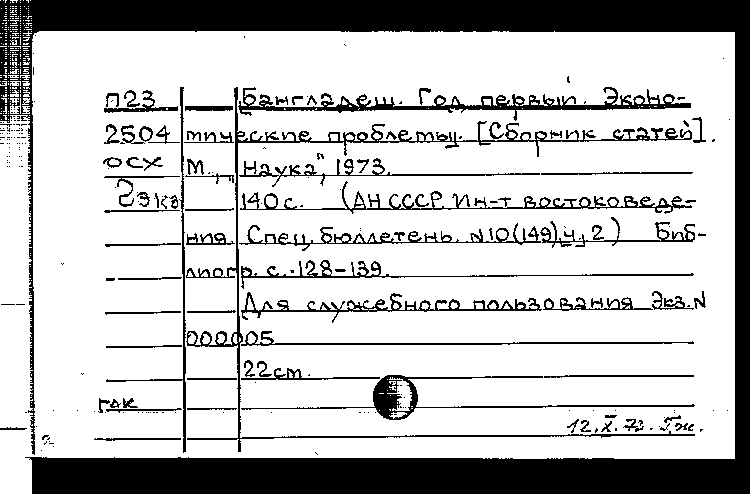 П23 Бангладеш. Год первый. Эконо-
2504 мические проблемы. [Сборник статей].
ОСХ М., "Наука", 1973.
2экз 140 с. (АН СССР. Ин-т востоковеде-
ния. Спец. бюллетень. N10(149), ч. 2) Биб-
лиогр. с. 128-139.
Для служебного пользования Экз. N
000005
22 см.
ГАК
12.X.73.